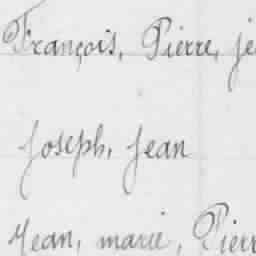 François, Pierre, je
Joseph, Jean
Jean, marie, Pierr